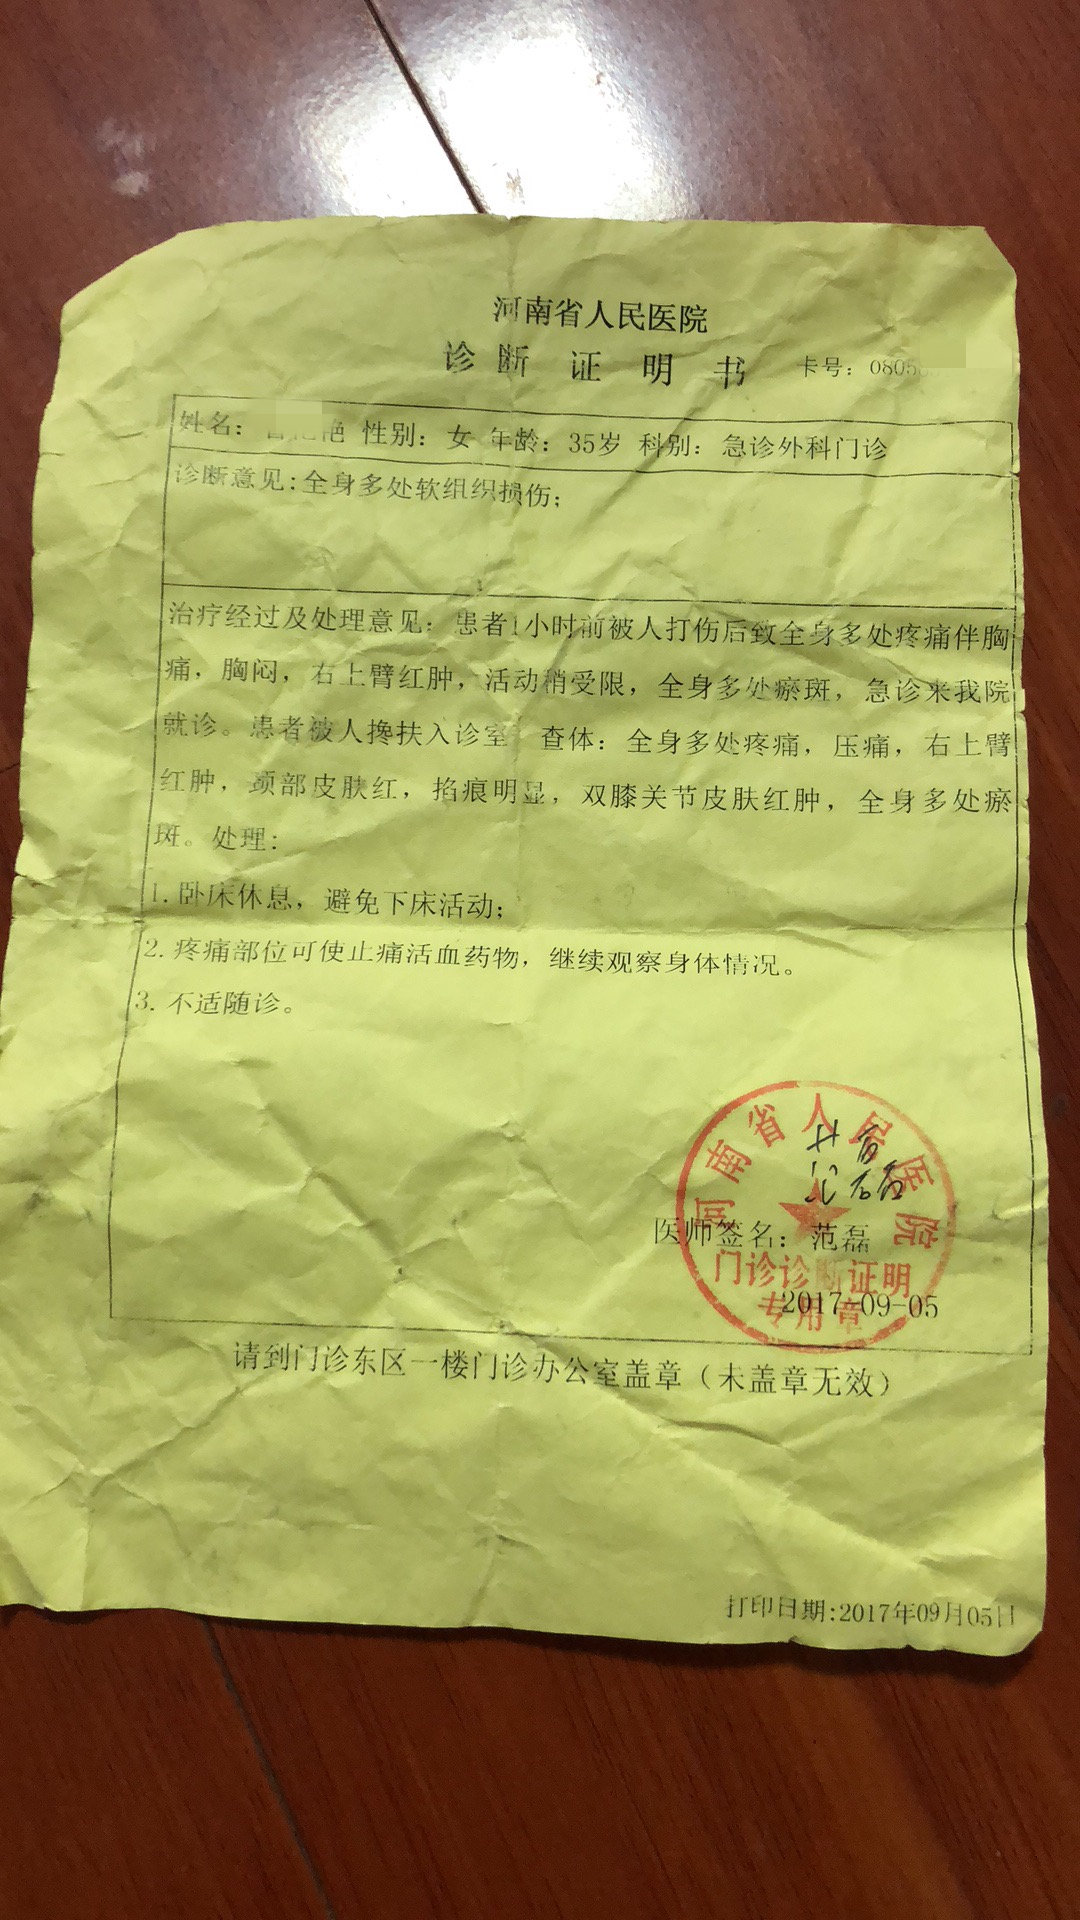 河南省人民医院
诊断证明书 卡号：0805
姓名： 艳 性别：女 年龄：35岁 科别：急诊外科门诊
诊断意见：全身多处软组织损伤；
治疗经过及处理意见：患者1小时前被人打伤后致全身多处疼痛伴胸
痛，胸闷，右上臂红肿，活动稍受限，全身多处瘀斑，急诊来我院
就诊。患者被人搀扶入诊室 查体：全身多处疼痛，压痛，右上臂
红肿，颈部皮肤红，掐痕明显，双膝关节皮肤红肿，全身多处瘀
斑。处理：
1.卧床休息，避免下床活动；
2.疼痛部位可使止痛活血药物，继续观察身体情况。
3.不适随诊。
河南省人民医院
医师签名：范磊
门诊诊断证明
2017-09-05
专用章
请到门诊东区一楼门诊办公室盖章（未盖章无效）
打印日期:2017年09月05日